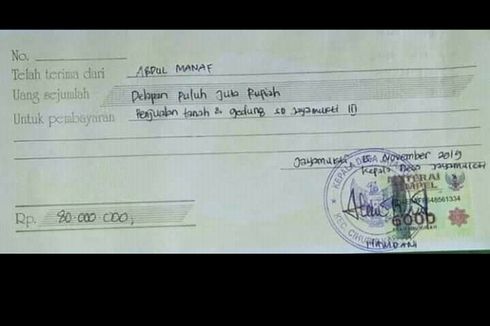 No.
Telah terima dari ABDUL MANAF
Uang sejumlah Delapan Puluh Juta Rupiah
Untuk pembayaran Penjualan tanah & gedung SD Jayamukti III
Jayamukti November 2019
Kepala Desa Jayamukti
KEPALA DESA
KEC. CIHU
METERAI
TEMPEL
6000
Rp. 80.000.000,
HAMDANI